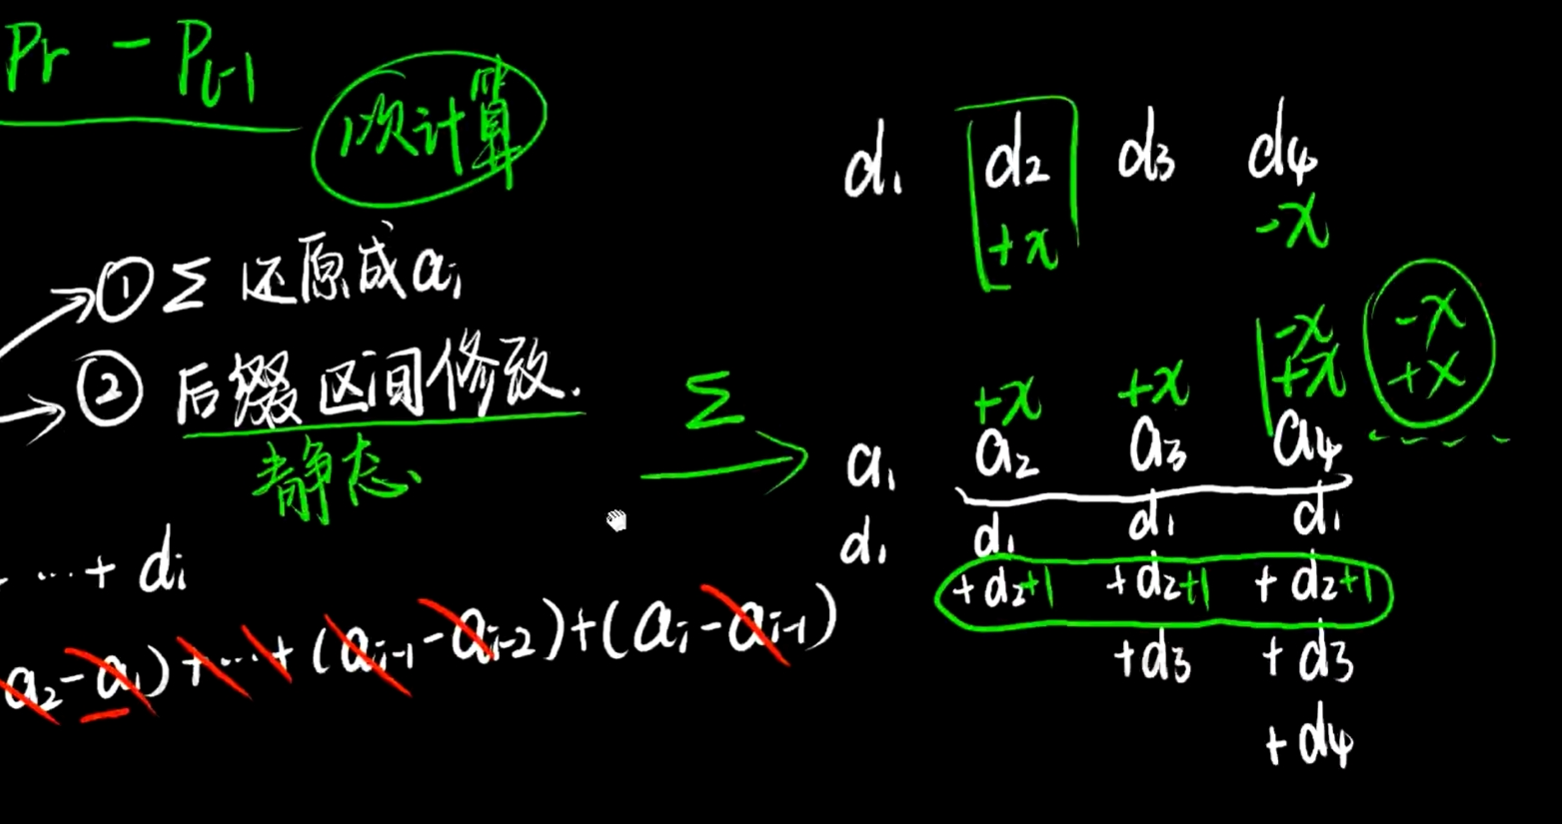 Pr - Pl-1
1次计算
① Σ 还原成ai
② 后缀区间修改.
静态
… + di
a2-a1)+…+(ai-1-ai-2)+(ai-ai-1)
d1 d2 d3 d4
+x -x
Σ
-x -x
+x +x +x +x
a1 a2 a3 a4
d1 d1 d1 d1
+d2+1 +d2+1 +d2+1
+d3 +d3
+d4